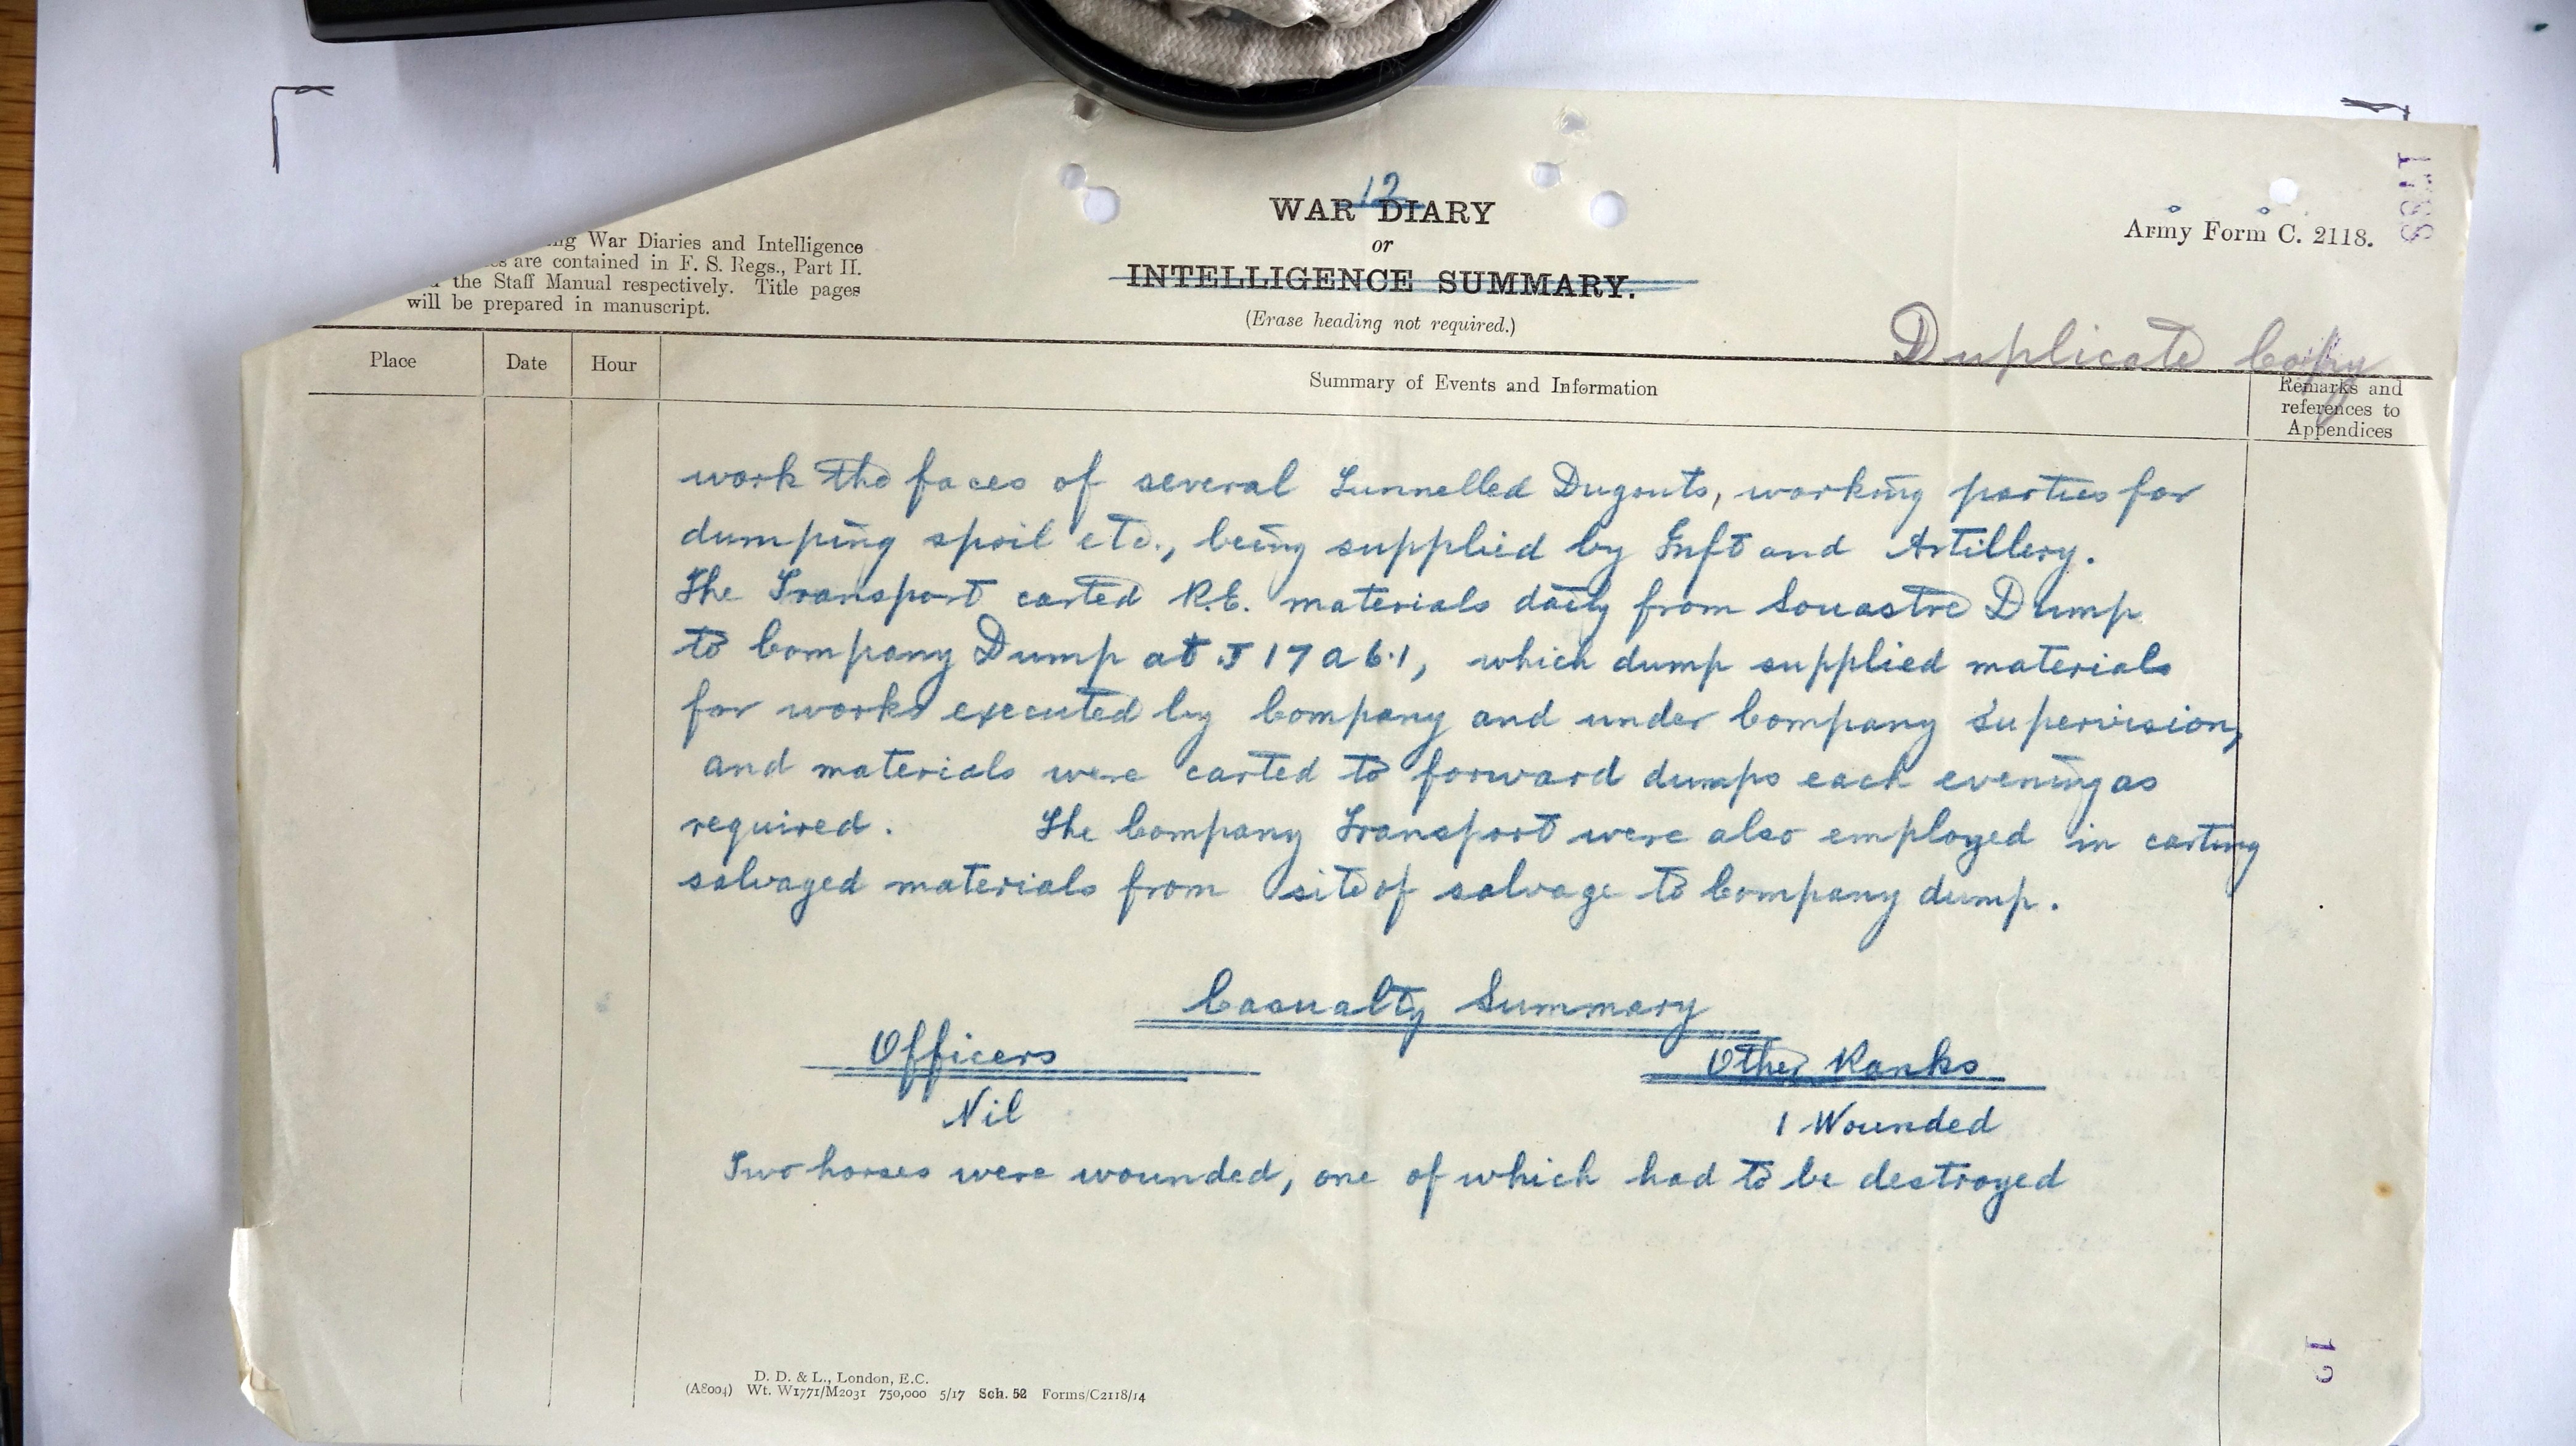 12
WAR DIARY
or
INTELLIGENCE SUMMARY.
(Erase heading not required.)
Army Form C. 2118.
Duplicate Copy
War Diaries and Intelligence
are contained in F. S. Regs., Part II.
the Staff Manual respectively. Title pages
will be prepared in manuscript.
Place Date Hour Summary of Events and Information Remarks and
references to
Appendices
work the faces of several Tunnelled Dugouts, working parties for
dumping spoil etc., being supplied by Inft and Artillery.
The Transport carted R.E. materials daily from Souastre Dump
to Company Dump at J 17 a 6.1, which dump supplied materials
for works executed by Company and under Company Supervision,
and materials were carted to forward dumps each evening as
required. The Company Transport were also employed in carting
salvaged materials from site of salvage to Company dump.
Casualty Summary
Officers Other Ranks
Nil 1 Wounded
Two horses were wounded, one of which had to be destroyed
D. D. & L., London, E.C.
(A8004) Wt. W1771/M2031 750,000 5/17 Sch. 52 Forms/C2118/14